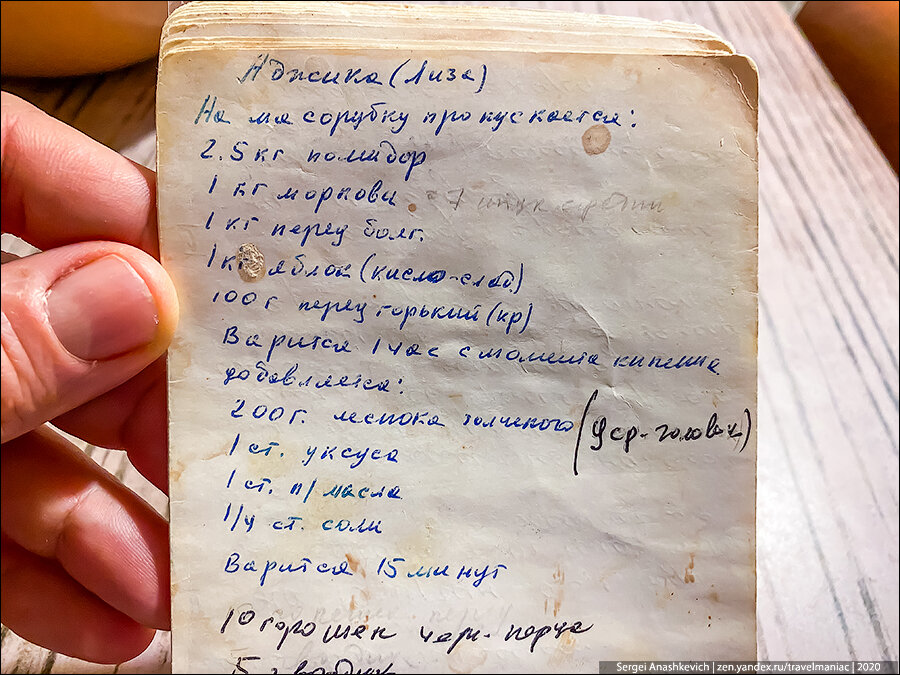 Аджика (Лиза)
На мясорубку пропускается:
2.5 кг помидор
1 кг моркови = 7 штук средних
1 кг перец болг.
1 кг яблок (кисло-слад.)
100 г перец горький (кр)
Варится 1 час с момента кипения
добавляется:
200 г. чеснока толченого (9 ср. головок)
1 ст. уксуса
1 ст. п/масла
1/4 ст. соли
Варится 15 минут
10 горошен черн. перца
5 гвоздик
Sergei Anashkevich | zen.yandex.ru/travelmaniac | 2020